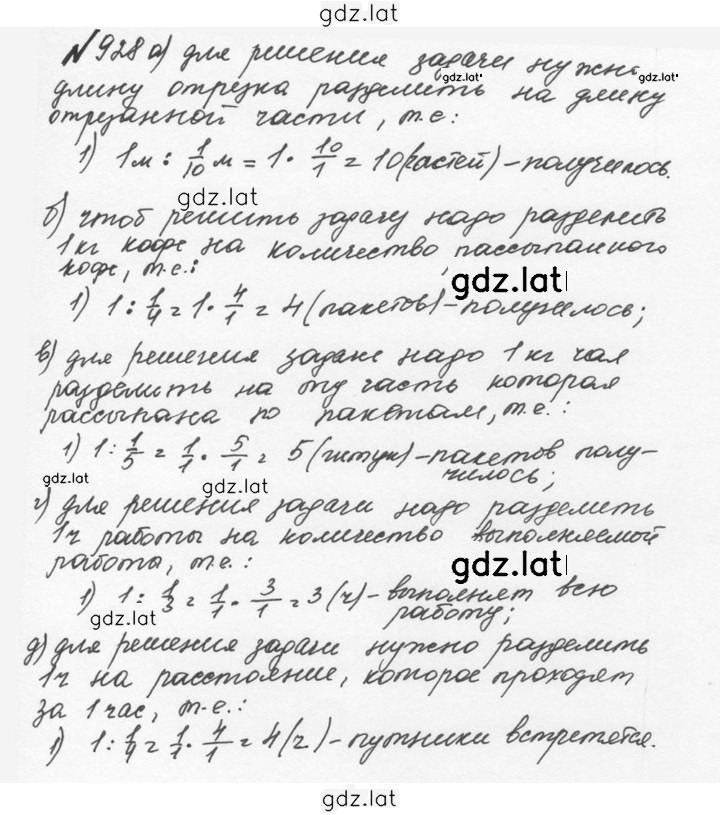 gdz.lat
№928 а) для решения задачи нужно
gdz.lat gdz.lat
длину отрезка разделить на длину
отрезанной части, т.е:
1) 1м : 1/10 м = 1 · 10/1 = 10 (частей) - получилось.
gdz.lat
б) чтоб решить задачу надо разделить
1 кг кофе на количество рассыпанного
кофе, т.е.:
gdz.lat
1) 1 : 1/4 = 1 · 4/1 = 4 (пакетов) - получилось;
в) для решения задачи надо 1 кг чая
разделить на ту часть которая
рассыпана по пакетам, т.е.:
1) 1 : 1/5 = 1/1 · 5/1 = 5 (штук) - пакетов полу-
чилось;
gdz.lat gdz.lat
г) для решения задачи надо разделить
1ч работы на количество выполняемой
работы, т.е.:
gdz.lat
1) 1 : 1/3 = 1/1 · 3/1 = 3 (ч) - выполняет всю
работу;
gdz.lat
д) для решения задачи нужно разделить
1ч на расстояние, которое проходят
за 1 час, т.е.:
1) 1 : 1/4 = 1/1 · 4/1 = 4 (ч) - путники встретятся.
gdz.lat